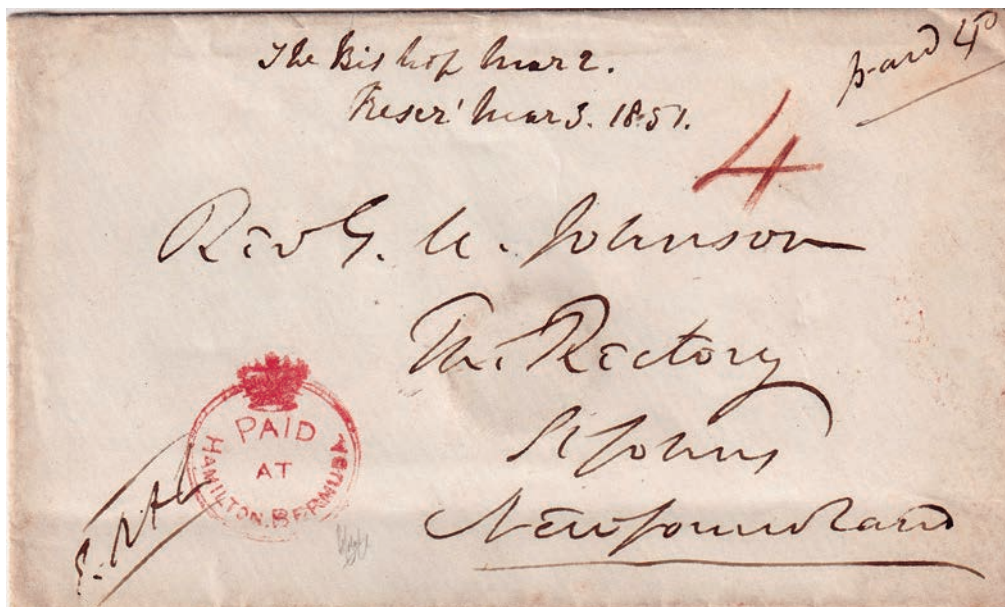 The Bishop Mar 2.
Mar 3. 1851.
paid 4D
4
Rev G. M. Johnson
The Rectory
St Johns
Newfoundland
PAID
AT
HAMILTON. BERMUDA